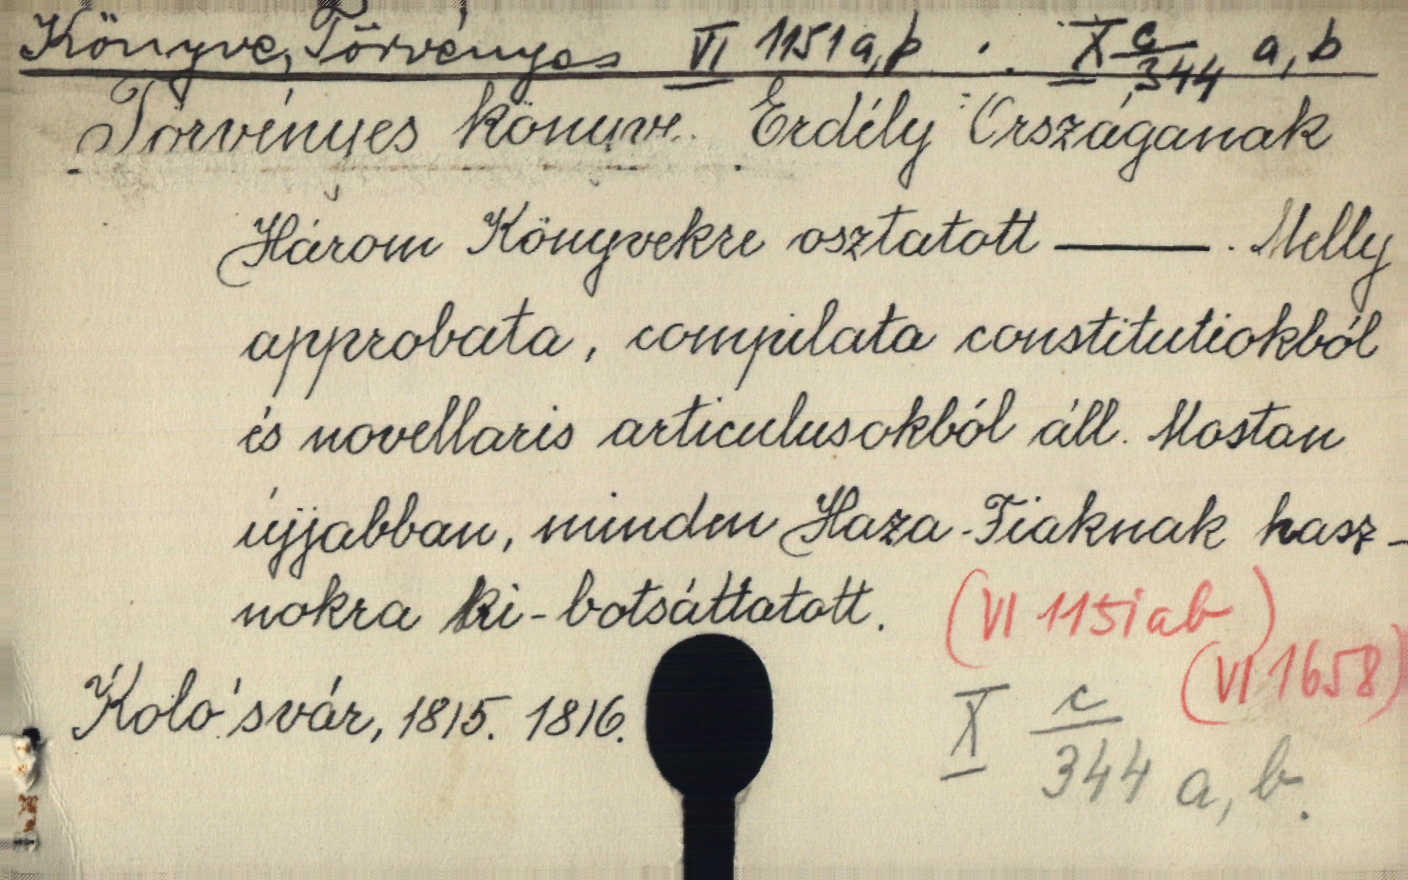 Könyve, Törvényes VI 1151 a, b . X c/344 a, b
Törvényes könyve. Erdély Országának
Három Könyvekre osztatott ——— . Melly
approbata, compilata constitutiokból
és novellaris articulusokból áll. Mostan
újjabban, minden Haza-Fiaknak hasz-
nokra ki-botsáttatott.
(VI 1151 ab)
(VI 1658)
Kolo'svár, 1815. 1816.
X c/344 a, b.